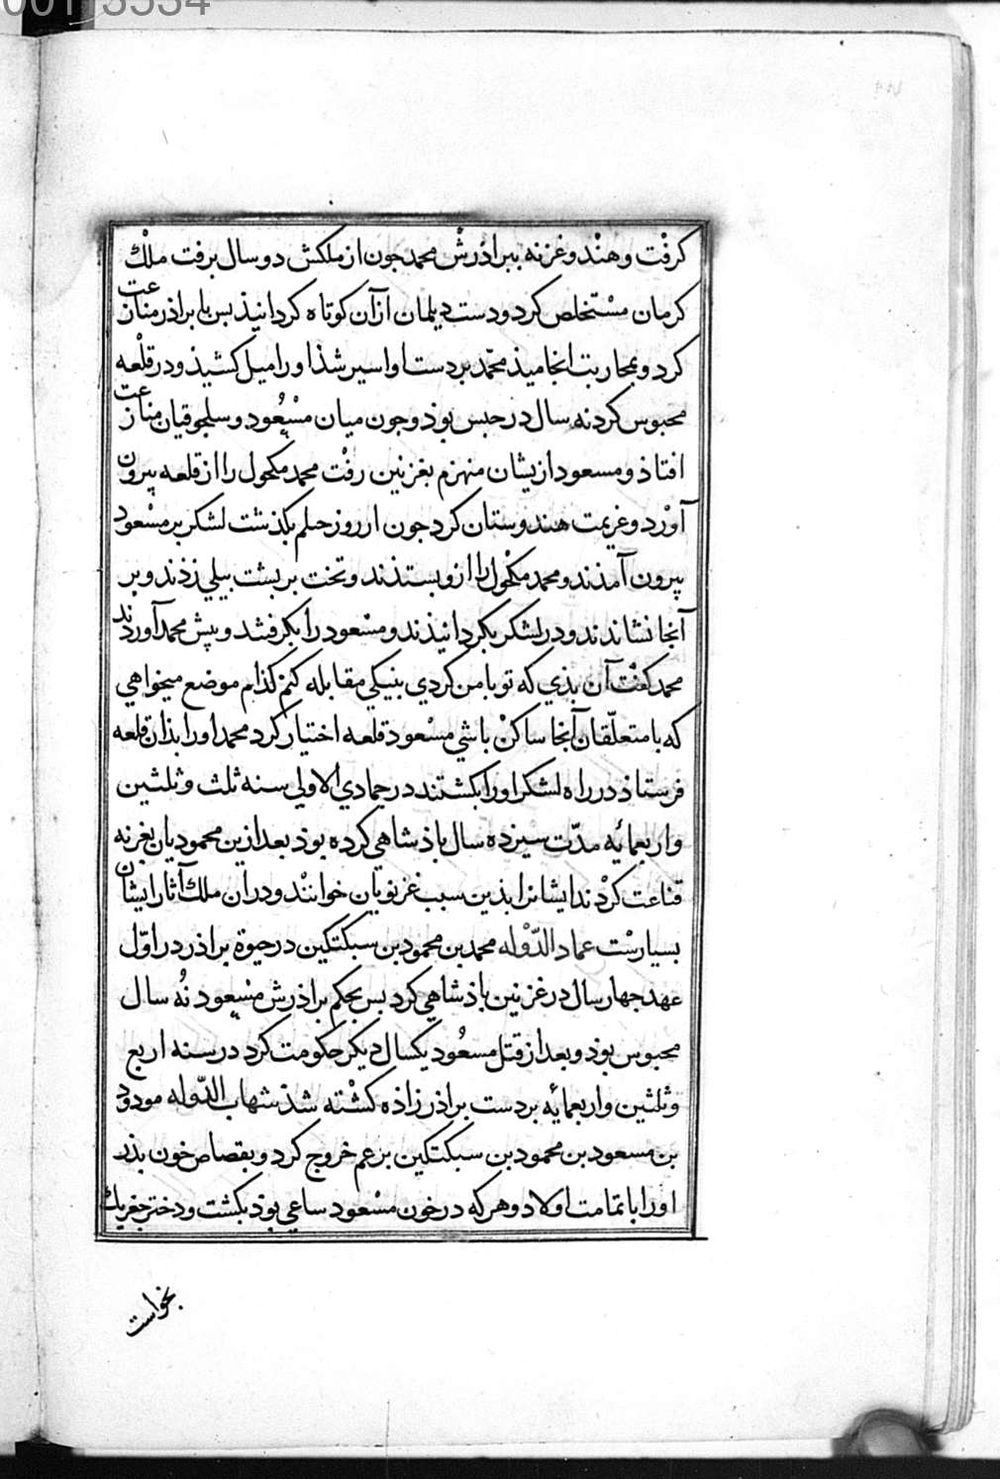 كرفت و هند و غزنه ببراذرش محمد جون از ملكش دو سال برفت ملك
كرمان مستخلص كرد و دست ديلمان از آن كوتاه كردانيذ بس با براذر منازعت
كرد و بمحاربت انجاميذ محمد بر دست او اسير شذ او را ميل كشيذ و در قلعه
محبوس كرد نه سال در حبس بوذ و جون ميان مسعود و سلجوقيان منازعت
افتاذ و مسعود ازيشان منهزم بغزنين رفت محمد مكحول را از قلعه بيرون
آورد و عزيمت هندوستان كرد جون از روذ جيلم بكذشت لشكر بر مسعود
بيرون آمذند و محمد مكحول را ازو بستذند و تخت بر بشت بيلي زذند و بر
آنجا نشاندند و در لشكر بكردانيذند و مسعود را بكرفتند و بيش محمد آوردند
محمد كفت آن بذي كه تو با من كردي بنيكي مقابله كنم كذام موضع ميخواهي
كه با متعلقان آنجا ساكن باشي مسعود قلعه اختيار كرد محمد او را بذان قلعه
فرستاذ در راه لشكر او را بكشتند در جمادي الاولي سنه ثلث و ثلثين
و اربعمائه مدت سيزده سال باذشاهي كرده بوذ بعد ازين محموديان بغزنه
قناعت كردند ايشانرا بذين سبب غزنويان خوانند و دران ملك آثار ايشان
بسيارست عماد الدوله محمد بن محمود بن سبكتكين در حيوة براذر در اول
عهد جهار سال در غزنين باذشاهي كرد بس بحكم براذرش مسعود نه سال
محبوس بوذ و بعد از قتل مسعود يكسال ديكر حكومت كرد در سنه اربع
و ثلثين و اربعمائه بر دست براذر زاذه كشته شذ شهاب الدوله مودود
بن مسعود بن محمود بن سبكتكين بر عم خروج كرد و بقصاص خون بذر
او را با تمامت اولاد و هر كه در خون مسعود ساعي بوذ بكشت و دختر جغريبك
بخواست